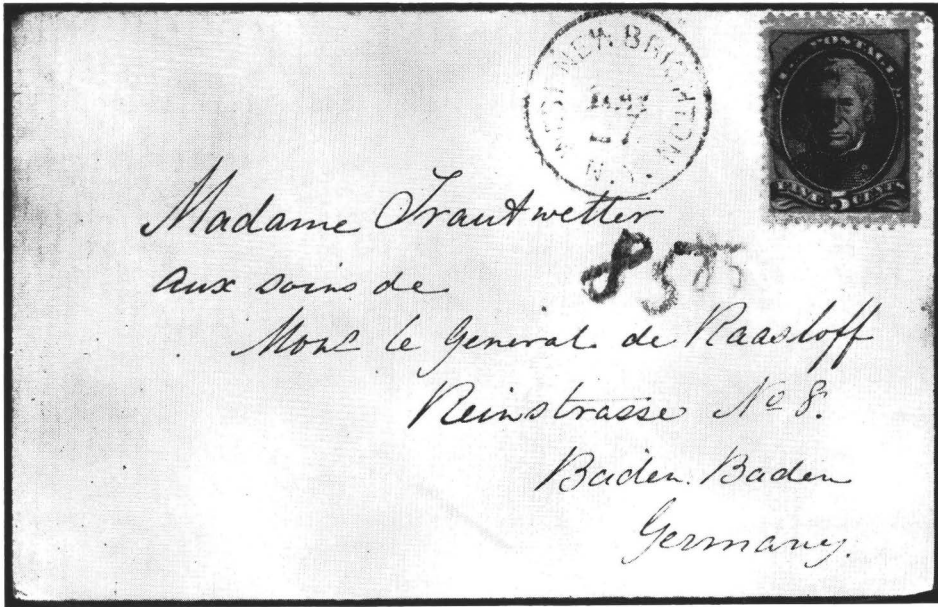 WEST NEW BRIGHTON
N.Y.
U.S. POSTAGE
FIVE 5 CENTS
Madame Trautwetter
aux soins de
Monc le General de Raasloff
Reinstrasse No 8.
Baden Baden
Germany.